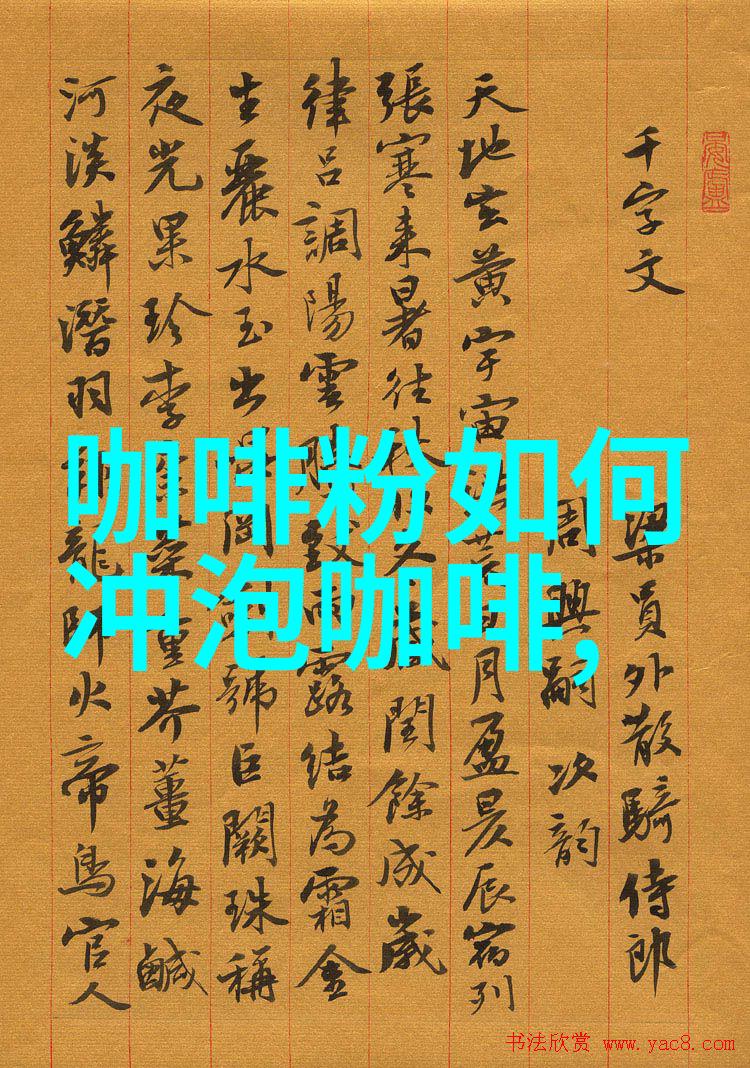 千字文
梁員外散騎侍郎
周興嗣次韵
天地玄黄宇宙洪荒日月盈昃辰宿列
張寒来暑往秋收冬藏閏餘成歲
律吕調陽雲騰致雨露結為霜金
生麗水玉出崑岡劍號巨闕珠稱
夜光果珍李柰菜重芥薑海鹹
河淡鱗潛羽翔龍師火帝鳥官人
咖啡粉如何
冲泡咖啡,
书法欣赏 www.yac8.com